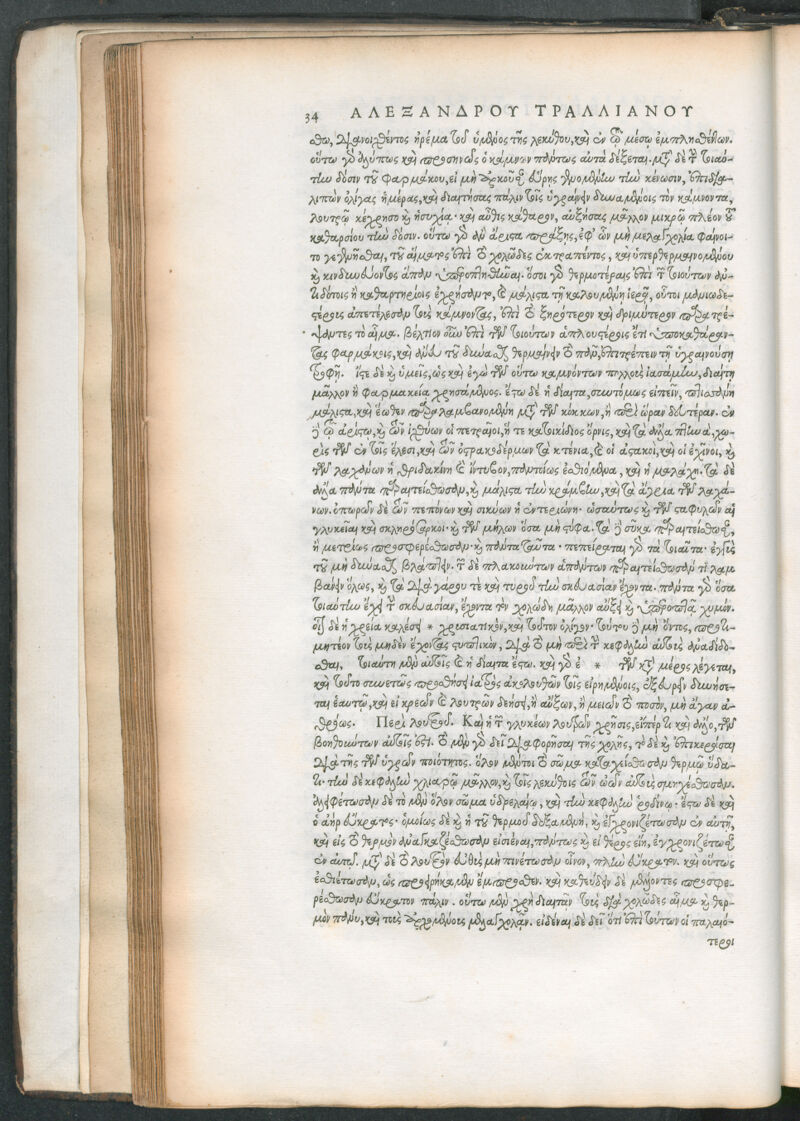 34 ΑΛΕΞΑΝΔΡΟΥ ΤΡΑΛΛΙΑΝΟΥ
σθω, διανοιχθέντος ἠρέμα τοῦ ὑμένος τῆς λεκύθου, καὶ ἐν τῷ μέσῳ ἐμπλησθένων.
οὕτω γὰρ ἀλύπως καὶ προσηνῶς ὁ κάμνων πάντως αὐτὰ δέξεται. μετὰ δὲ τὴν τοιαύ-
την δόσιν τοῦ φαρμάκου, εἰ μὴ ἀρκοῦσαν εὕρῃς γενομένην τὴν κένωσιν, ἐπιδια-
λιπὼν ὀλίγας ἡμέρας, καὶ διαιτήσας πάλιν τοῖς ὑγραίνειν δυναμένοις τὸν κάμνοντα,
λουτρῷ κέχρησο καὶ ἡσυχίᾳ· καὶ αὖθις κάθαρον, αὐξήσας μᾶλλον μικρῷ πλέον τοῦ
καθαρσίου τὴν δόσιν. οὕτω γὰρ ἂν ἄριστα πράξῃς, ἐφ' ὧν μὴ μελαγχολία φαίνοι-
το γεγενῆσθαι, τοῦ αἵματος ἐπὶ τὸ χολῶδες ἐκτραπέντος, καὶ ὑπερθερμαινομένου
καὶ κινδυνεύοντος ἅπαν ὑπεροπτηθῆναι. ὅσοι γὰρ θερμοτέραις ἐπὶ τῶν τοιούτων ἀν-
τιδότοις ἢ καθαρτηρίοις ἐχρήσαντο, καὶ μάλιστα τῇ καλουμένῃ ἱερᾷ, οὗτοι μανιωδε-
στέρους ἀπετέλεσαν τοὺς κάμνοντας, ἐπὶ τὸ ξηρότερον καὶ δριμύτερον παρατρέ-
ψαντες τὸ αἷμα. βέλτιον οὖν ἐπὶ τῶν τοιούτων ἁπλουστέροις ἔτι ὑποκαθάραν-
τας φαρμάκοις, καὶ ἄνευ τοῦ δύνασθαι θερμαίνειν τὸ πᾶν, ἐπιτρέπειν τῇ ὑγραινούσῃ
τροφῇ. ἴστε δὲ καὶ ὑμεῖς, ὡς καὶ ἐγὼ τῶν οὕτω καμνόντων πολλοὺς ἰασάμην, διαίτῃ
μᾶλλον ἢ φαρμακείᾳ χρησάμενος. ἔστω δὲ ἡ δίαιτα, συντόμως εἰπεῖν, πτισάνη
μάλιστα, καὶ ἕωθεν παραλαμβανομένη μετὰ τῶν κόκκων, ἢ περὶ ὥραν δευτέραν. ἐν
δὲ τῷ ἀρίστῳ, καὶ τῶν ἰχθύων οἱ πετραῖοι, ἥ τε κατοικίδιος ὄρνις, καὶ τὰ ἄλλα πτηνά, χω-
ρὶς τῶν ἐν τοῖς ἕλεσι, καὶ τῶν ὀστρακοδέρμων τὰ κτένια, καὶ οἱ ἀστακοί, καὶ οἱ ἐχῖνοι, καὶ
τῶν λαχάνων ἡ θριδακίνη καὶ ἴντυβον, παντοίως ἐσθιόμενα, καὶ ἡ μαλάχη. τὰ δὲ
ἄλλα πάντα παραιτείσθωσαν, καὶ μάλιστα τὴν κράμβην, καὶ τὰ ἄγρια τῶν λαχά-
νων. ὀπωρῶν δὲ τῶν πεπόνων καὶ σικύων ἡ ἐντεριώνη· ὡσαύτως καὶ τῶν σταφυλῶν αἱ
γλυκεῖαι καὶ σκληρόσαρκοι· καὶ τῶν μήλων ὅσα μὴ στυφά. τὰ δὲ σῦκα παραιτείσθωσαν,
ἢ μετρίως προσφερέσθωσαν καὶ πάντα ταῦτα· πεπείραται γὰρ τὰ τοιαῦτα· ἐγγὺς
τοῦ μὴ δύνασθαι βλάπτειν. τῶν δὲ πλακούντων ἁπάντων παραιτείσθωσαν τι λαμ
βάνειν ὅλως, καὶ τὰ διὰ γάρου τε καὶ τυροῦ τὴν σκευασίαν ἔχοντα. πάντα γὰρ ὅσα
τοιαύτην ἔχει τὴν σκευασίαν, ἔχοντα τὸν χολώδη μᾶλλον αὔξει καὶ ὑπεροπτᾷ χυμόν.
εἰ δὲ ἡ χρεία καλέσῃ * χρισιατικόν, καὶ τοῦτον ὀλίγον· τούτου δὲ μὴ ὄντος, προτι-
μητέον τοὺς μηδὲν ἔχοντας στυπτικόν, διὰ τὸ μὴ περὶ τὴν κεφαλὴν αὐτοῖς ἀναδίδο-
σθαι. τοιαύτη μὲν αὐτοῖς καὶ ἡ δίαιτα ἔστω. καὶ γὰρ ἐ * τῶν κατὰ μέρος λέγεται,
καὶ τοῦτο συνετῶς προσθήσει ἰατρὸς ἀκολουθῶν τοῖς εἰρημένοις, ἐξευρεῖν δυνήσε-
ται ἑαυτῷ, καὶ εἰ κρεῶν καὶ λουτρῶν δεήσῃ, ἢ αὔξων, ἢ μειῶν τὸ ποσὸν, μὴ ἄγαν ἀ-
θρόως. Περὶ λουτροῦ. Καὶ ἡ τῶν γλυκέων λουτρῶν χρῆσις, εἴπερ τι καὶ ἄλλο, τῶν
βοηθούντων αὐτοῖς ἐστι. τὸ μὲν γὰρ δεῖ διαφορῆσαι τῆς χολῆς, τὸ δὲ καὶ ἐπικεράσαι
διὰ τῆς τῶν ὑγρῶν ποιότητος. ὅλον μέντοι τὸ σῶμα καταχείσθωσαν θερμῷ ὕδα-
τι· τὴν δὲ κεφαλὴν χλιαρῷ μᾶλλον, καὶ τοῖς λεκύθοις τῶν ὠῶν αὐτοὺς σμηχέσθωσαν.
ἀλειφέτωσαν δὲ τὸ μὲν ὅλον σῶμα ὑδρελαίῳ, καὶ τὴν κεφαλὴν ῥοδίνῳ· ἔστω δὲ καὶ
ὁ ἀὴρ εὔκρατος· ὁμοίως δὲ καὶ ἡ τοῦ θερμοῦ δεξαμενὴ, καὶ ἐγχρονιζέτωσαν ἐν αὐτῇ,
καὶ εἰς τὸ θερμὸν ἀναγκαζέσθωσαν εἰσιέναι, πάντως κἂν εἰ θέρος εἴη, ἐγχρονιζέτωσαν
ἐν αὐτῷ. μετὰ δὲ τὸ λουτρὸν εὐθὺς μὴ πινέτωσαν οἶνον, πλὴν εὔκρατον. καὶ οὕτως
ἐσθιέτωσαν, ὡς προείρηκαμεν ἔμπροσθεν. καὶ καθεύδειν δὲ μέλλοντες προσφε-
ρέσθωσαν εὔκρατον πάλιν. οὕτω μὲν χρὴ διαιτᾶν τοὺς διὰ χολῶδες αἷμα καὶ θερ-
μὸν πάνυ, καὶ τοὺς ἀρχομένους μελαγχολᾶν. εἰδέναι δὲ δεῖ ὅτι ἐπὶ τούτων οἱ παλαιό-
τεροι